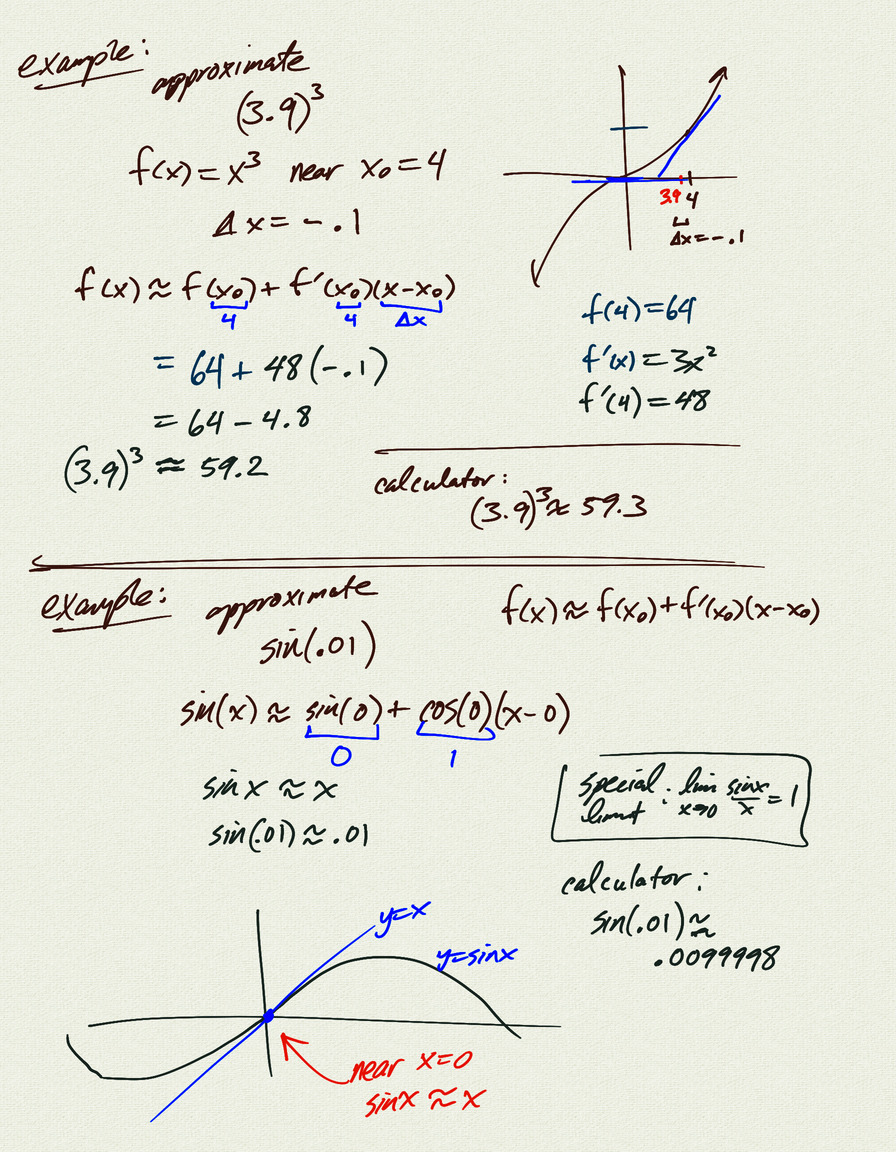 example:
approximate
(3.9)³
f(x) = x³ near x₀ = 4
Δx = -.1
3.9 4
Δx = -.1
f(x) ≈ f(x₀) + f'(x₀)(x-x₀)
4 4 Δx
= 64 + 48(-.1)
= 64 - 4.8
(3.9)³ ≈ 59.2
f(4) = 64
f'(x) = 3x²
f'(4) = 48
calculator:
(3.9)³ ≈ 59.3
example:
approximate
sin(.01)
f(x) ≈ f(x₀) + f'(x₀)(x-x₀)
sin(x) ≈ sin(0) + cos(0)(x-0)
0 1
sin x ≈ x
sin(.01) ≈ .01
special limit: lim x→0 sinx/x = 1
calculator:
sin(.01) ≈
.0099998
y=x
y=sinx
near x=0
sinx ≈ x